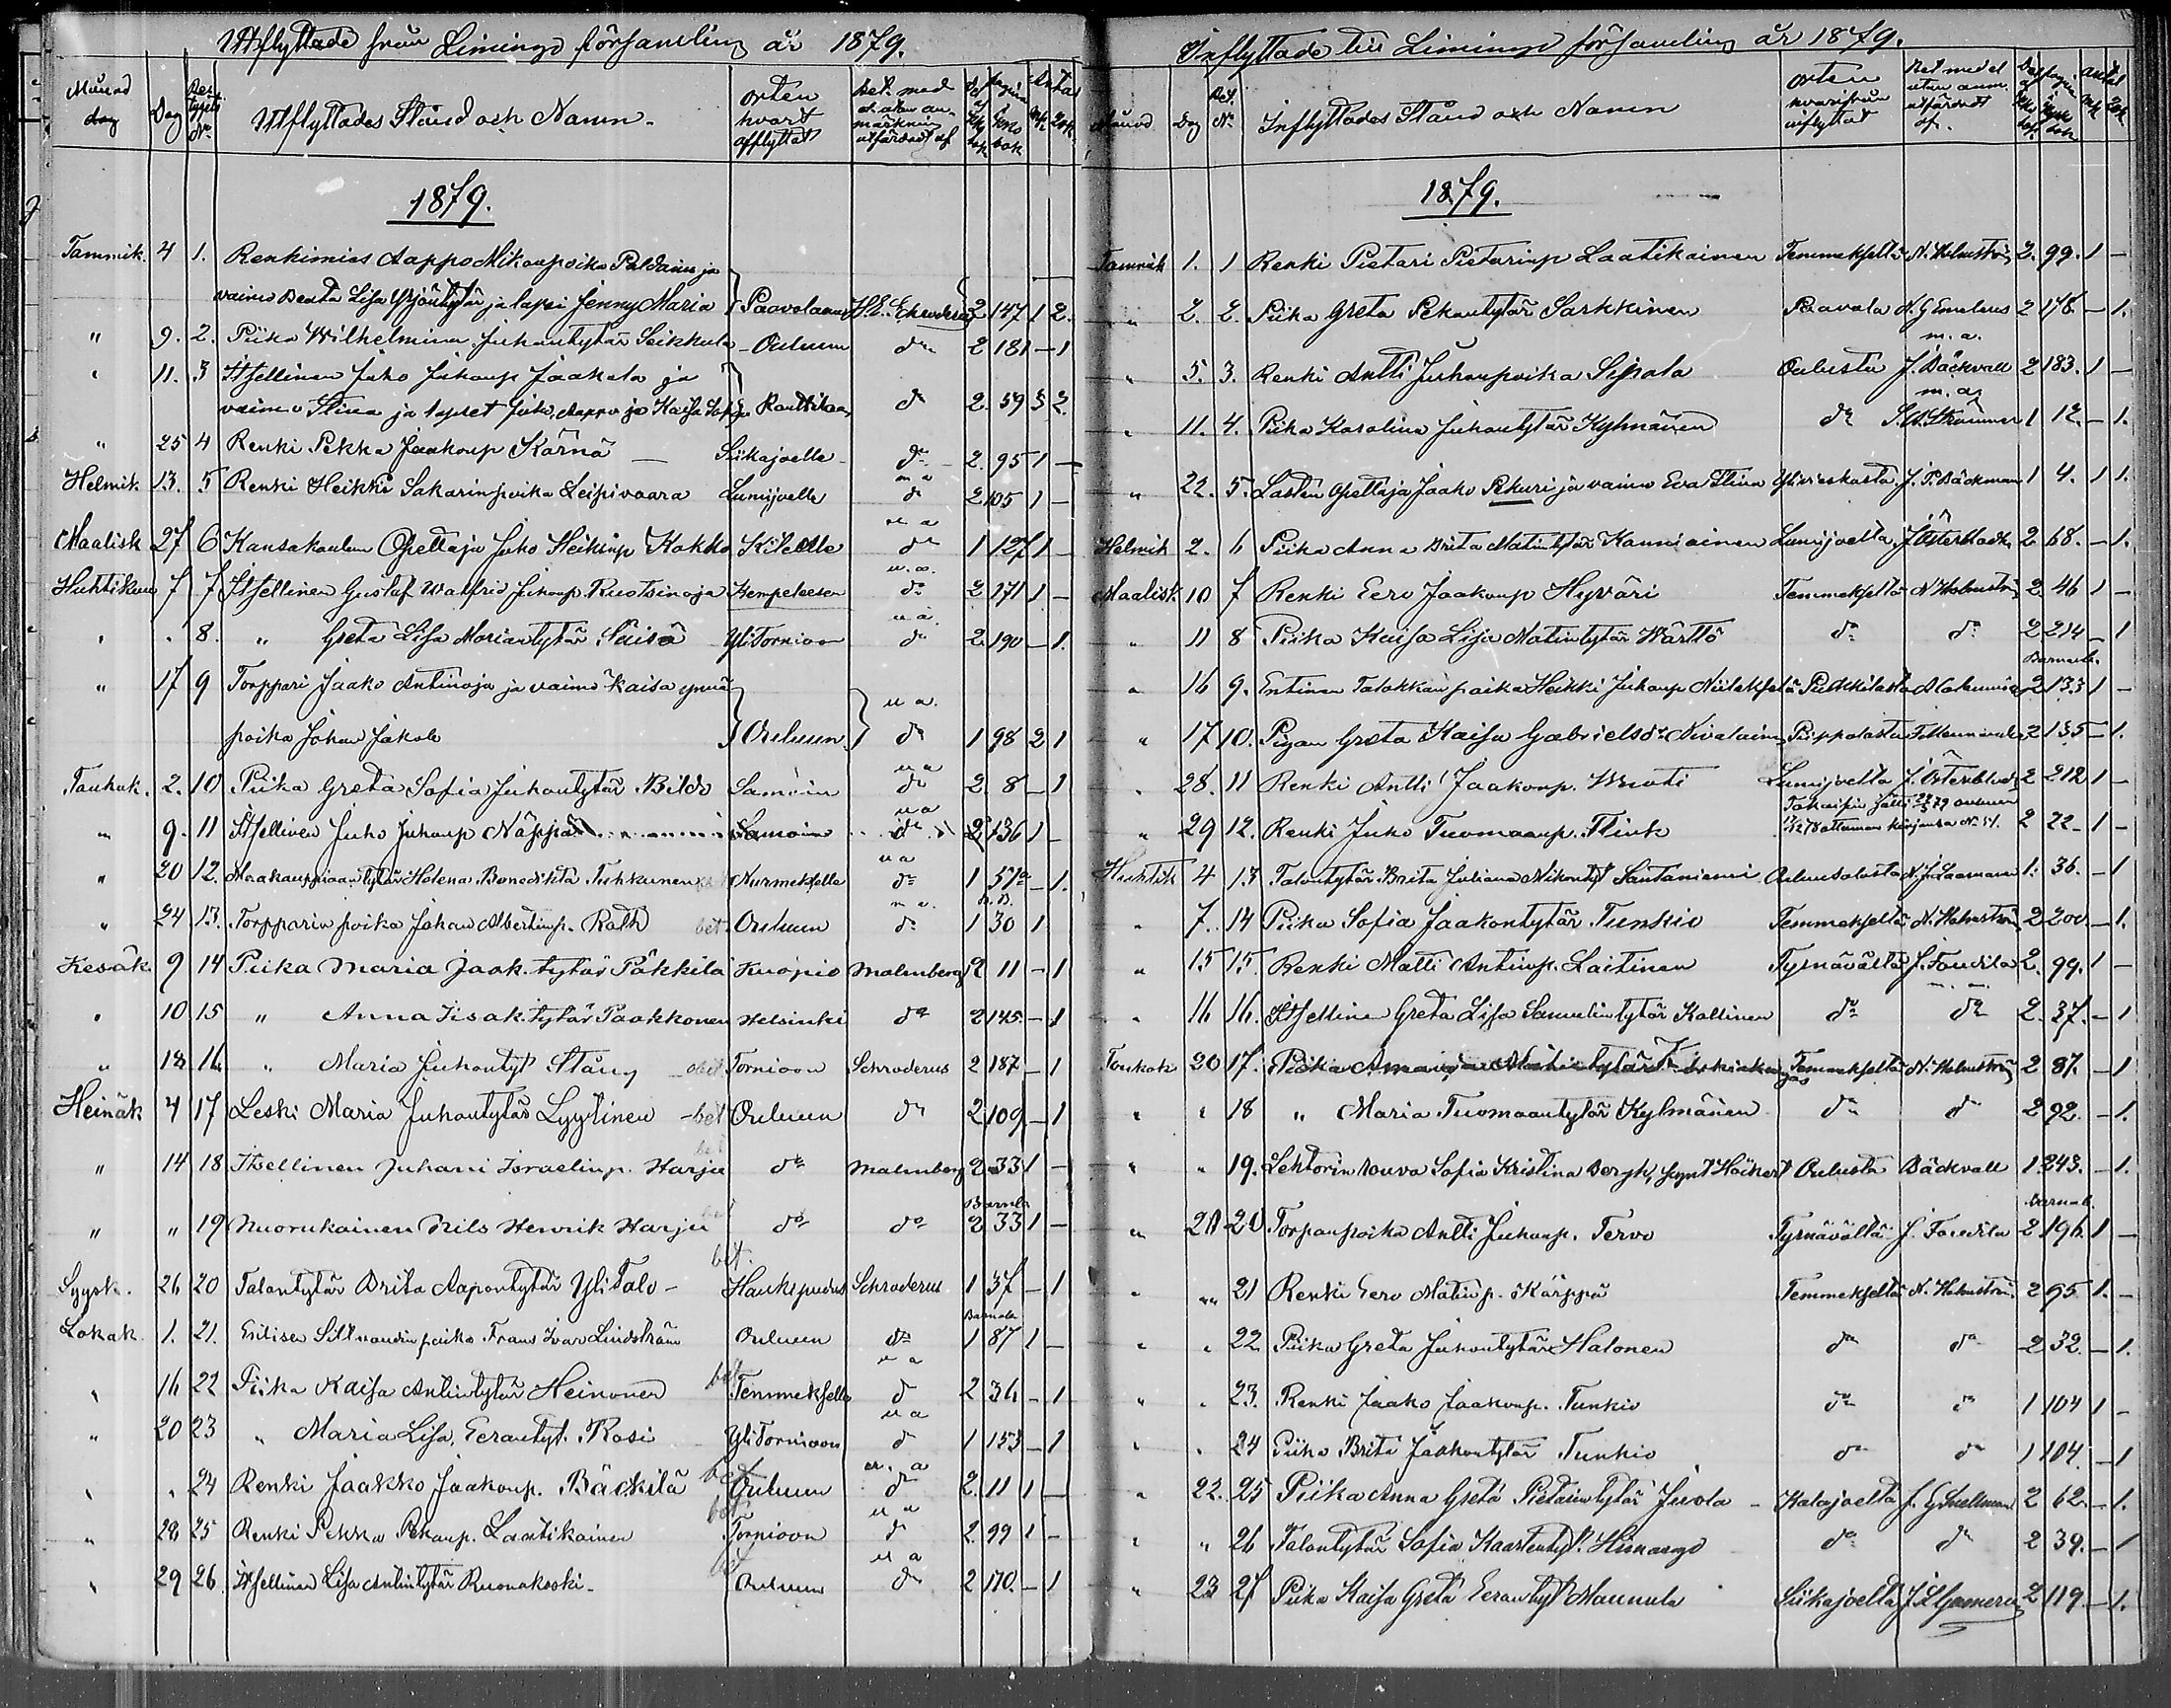 Utflyttade från Limingo församling år 1879.
Månad dag Dag Betygets No Utflyttades Stånd och Namn. orten hvart afflyttat Bet. med el. utan anmärkning utfärdadt af Mk. Qvk.
1879.
Tammik. 4 1. Renkimies Aappo Mikonpoika Paldanius ja
vaimo Beata Lisa Yrjöntytär ja lapsi Jenny Maria Paavolaan H.E. Schroderus 2 147 1 2.
" 9. 2. Piika Wilhelmina Juhantytär Seikkula Ouluun do 2 181 – 1
" 11. 3 Itsellinen Juho Juhanp Jaakola ja
vaimo Stina ja lapset Juho, Aappo ja Kaisa Sofia Rantsilaan do 2. 59 3 2.
" 25 4 Renki Pekka Jaakonp Kärnä — Siikajoelle do 2. 95 1 –
Helmik. 13. 5 Renki Heikki Sakarinpoika Leipivaara Lumijoelle m a do 2 105 1 –
Maalisk 27 6 Kansakoulun Opettaja Juho Heikinp Kokko Kiteelle u a do 1 127 1 –
Huhtikuu 7 7 Itsellinen Gustaf Walfrid Juhanp. Ruotsinoja Kempeleesen u. a. do 2 171 1 –
" " 8. " Greta Lisa Mariantytär Päisä Yli Tornioon u a. do 2. 190 – 1.
" 17 9 Torppari Jaako Antinoja ja vaimo Kaisa ynnä
poika Johan Jakob Ouluun u a. do 1 98 2 1
Toukok. 2. 10 Piika Greta Sofia Juhontytär Bildo Samoin u a do 2. 8 – 1
" 9. 11 Itsellinen Juho Juhanp Näppä Samoin u a do 2 136 1 –
" 20 12. Maakauppiaantytär Helena Benedikta Tuhkunen Nurmekselle u a do 1 57a – 1.
" 24 13. Torpparin poika Johan Albertinp. Rath bet. Ouluun m a. do 1 30 1
Kesäk. 9 14 Piika Maria Jaak.tytär Päkkilä Kuopio Malmberg 2 11 – 1
" 10 15 " Anna Iisak.tytär Paakkonen Helsinki do 2 145. – 1
" 18 16. " Maria Juhontyt Stång Tornioon Schroderus 2 187 – 1
Heinäk 4 17 Leski Maria Juhontytär Lyytinen – bet Ouluun do 2 109 – 1
" 14 18 Itsellinen Juhani Israelinp. Harju bet do Malmberg 2 33 1 –
" " 19 Nuorukainen Nils Henrik Harju do do Barnab 2 33 1 –
Syysk. 26 20 Talontytär Brita Aapontytär Yli Talo – bet. Haukipudas Schroderus 1 37 – 1
Lokak. 1. 21. Frans Ivar Lindström Ouluun do Barnab 1 87 1 –
" 16 22 Piika Kaisa Antintytär Heinonen bet. Temmekselle u a do 2 36 – 1
" 20 23 " Maria Lisa Eerontyt. Rasi Yli Tornioon u a do 1 153 – 1
" " 24 Renki Jaakko Jaakonp. Bäckilä bet Ouluun u. a do 2. 11 1 –
" 28 25 Renki Pekka Pekanp. Laatikainen bet Tornioon u a do 2. 99 1 –
" 29 26. Itsellinen Lisa Antintytär Ruonakoski – Ouluun u a do 2 170. – 1
Inflyttade till Limingo församling år 1879.
Månad Dag Bet. No Inflyttades Stånd och Namn orten hvarifrån inflyttat Bet. med el. utan anm. utfärdadt af.
1879.
Tammik 1. 1 Renki Pietari Pietarinp Laatikainen Temmekseltä N. Holmström 2. 99. 1 –
" 2. 2. Piika Greta Pekantytär Sarkkinen Paavola 2 178 – 1.
" 5. 3. Renki Antti Juhanpoika Sipola Oulusta m. a. J. Bäckvall 2 183. 1 –
" 11. 4. Piika Karolina Juhontytär Kylmänen do m. a. S. W. Strömmer 1 12. – 1.
" 22. 5. Lasten Opettaja Jaako Pekuri ja vaimo Eva Stina Ylivieskasta J. P. Bäckman 1 4. 1 1
Helmik 2. 6 Piika Anna Brita Matintytär Kanniainen Lumijoelta J. Österbladh. 2 68. – 1.
Maalisk 10 7 Renki Eero Jaakonp Hyväri Temmekseltä N. Holmström 2 46 1 –
" 11 8 Piika Kaisa Lisa Matintytär Wärttö do do 2 214 – 1
" 16 9. Entinen Talokkaan poika Heikki Juhanp Niilekselä Pulkkilasta Barnab. 2 133 1 –
" 17 10. Pigan Greta Kaisa Gabrielsdr Nivalainen Piippolasta 2 135 – 1.
" 28. 11 Renki Antti Jaakonp. Wuoti Lumijoelta J. Österbladh 2 212 1 –
" 29 12. Renki Juho Tuomaanp. Flink 2 22 – 1 –
Huhtik 4 13 Talontytär Brita Juliana Mikontyt Santaniemi Oulunsalosta 1. 36. – 1
" 7. 14 Piika Sofia Jaakontytär Tunkio Temmekseltä N. Holmström 2 200. – 1.
" 15 15. Renki Matti Antinp. Laitinen Tyrnävältä J. Foudila 2. 99. 1 –
" 16 16. Itsellinen Greta Lisa Samulintytär Kallinen do do 2. 37. – 1
Toukok 20 17. Piika Temmekseltä N. Holmström 2 87. – 1
" " 18 " Maria Tuomaantytär Kylmänen do do 2 92. – 1.
" " 19. Lehtorin rouva Sofia Kristina Bergh, synt Höckert Oulusta Bäckvall 1 243. – 1.
" 21 20 Torpanpoika Antti Juhanp. Tervo Tyrnävältä J. Foudila Barnab. 2 196. 1 –
" " 21 Renki Eero Matinp. Kärppä Temmekseltä N. Holmström. 2 95 1. –
" " 22. Piika Greta Juhontytär Halonen do do 2 32. – 1.
" " 23. Renki Jaako Jaakonp. Tunkio do do 1 104 1 –
" " 24 Piika Brita Jaakontytär Tunkio do do 1 104. – 1
" 22. 25 Piika Anna Greta Pietarintytär Juola – Kalajoelta J. G. Snellman 2 62. – 1.
" " 26 Talontytär Sofia Kaarlentyt. Himango do do 2 39. – 1
" 23 27 Piika Kaisa Greta Eerontyt Maunula Siikajoelta 2 119 – 1.